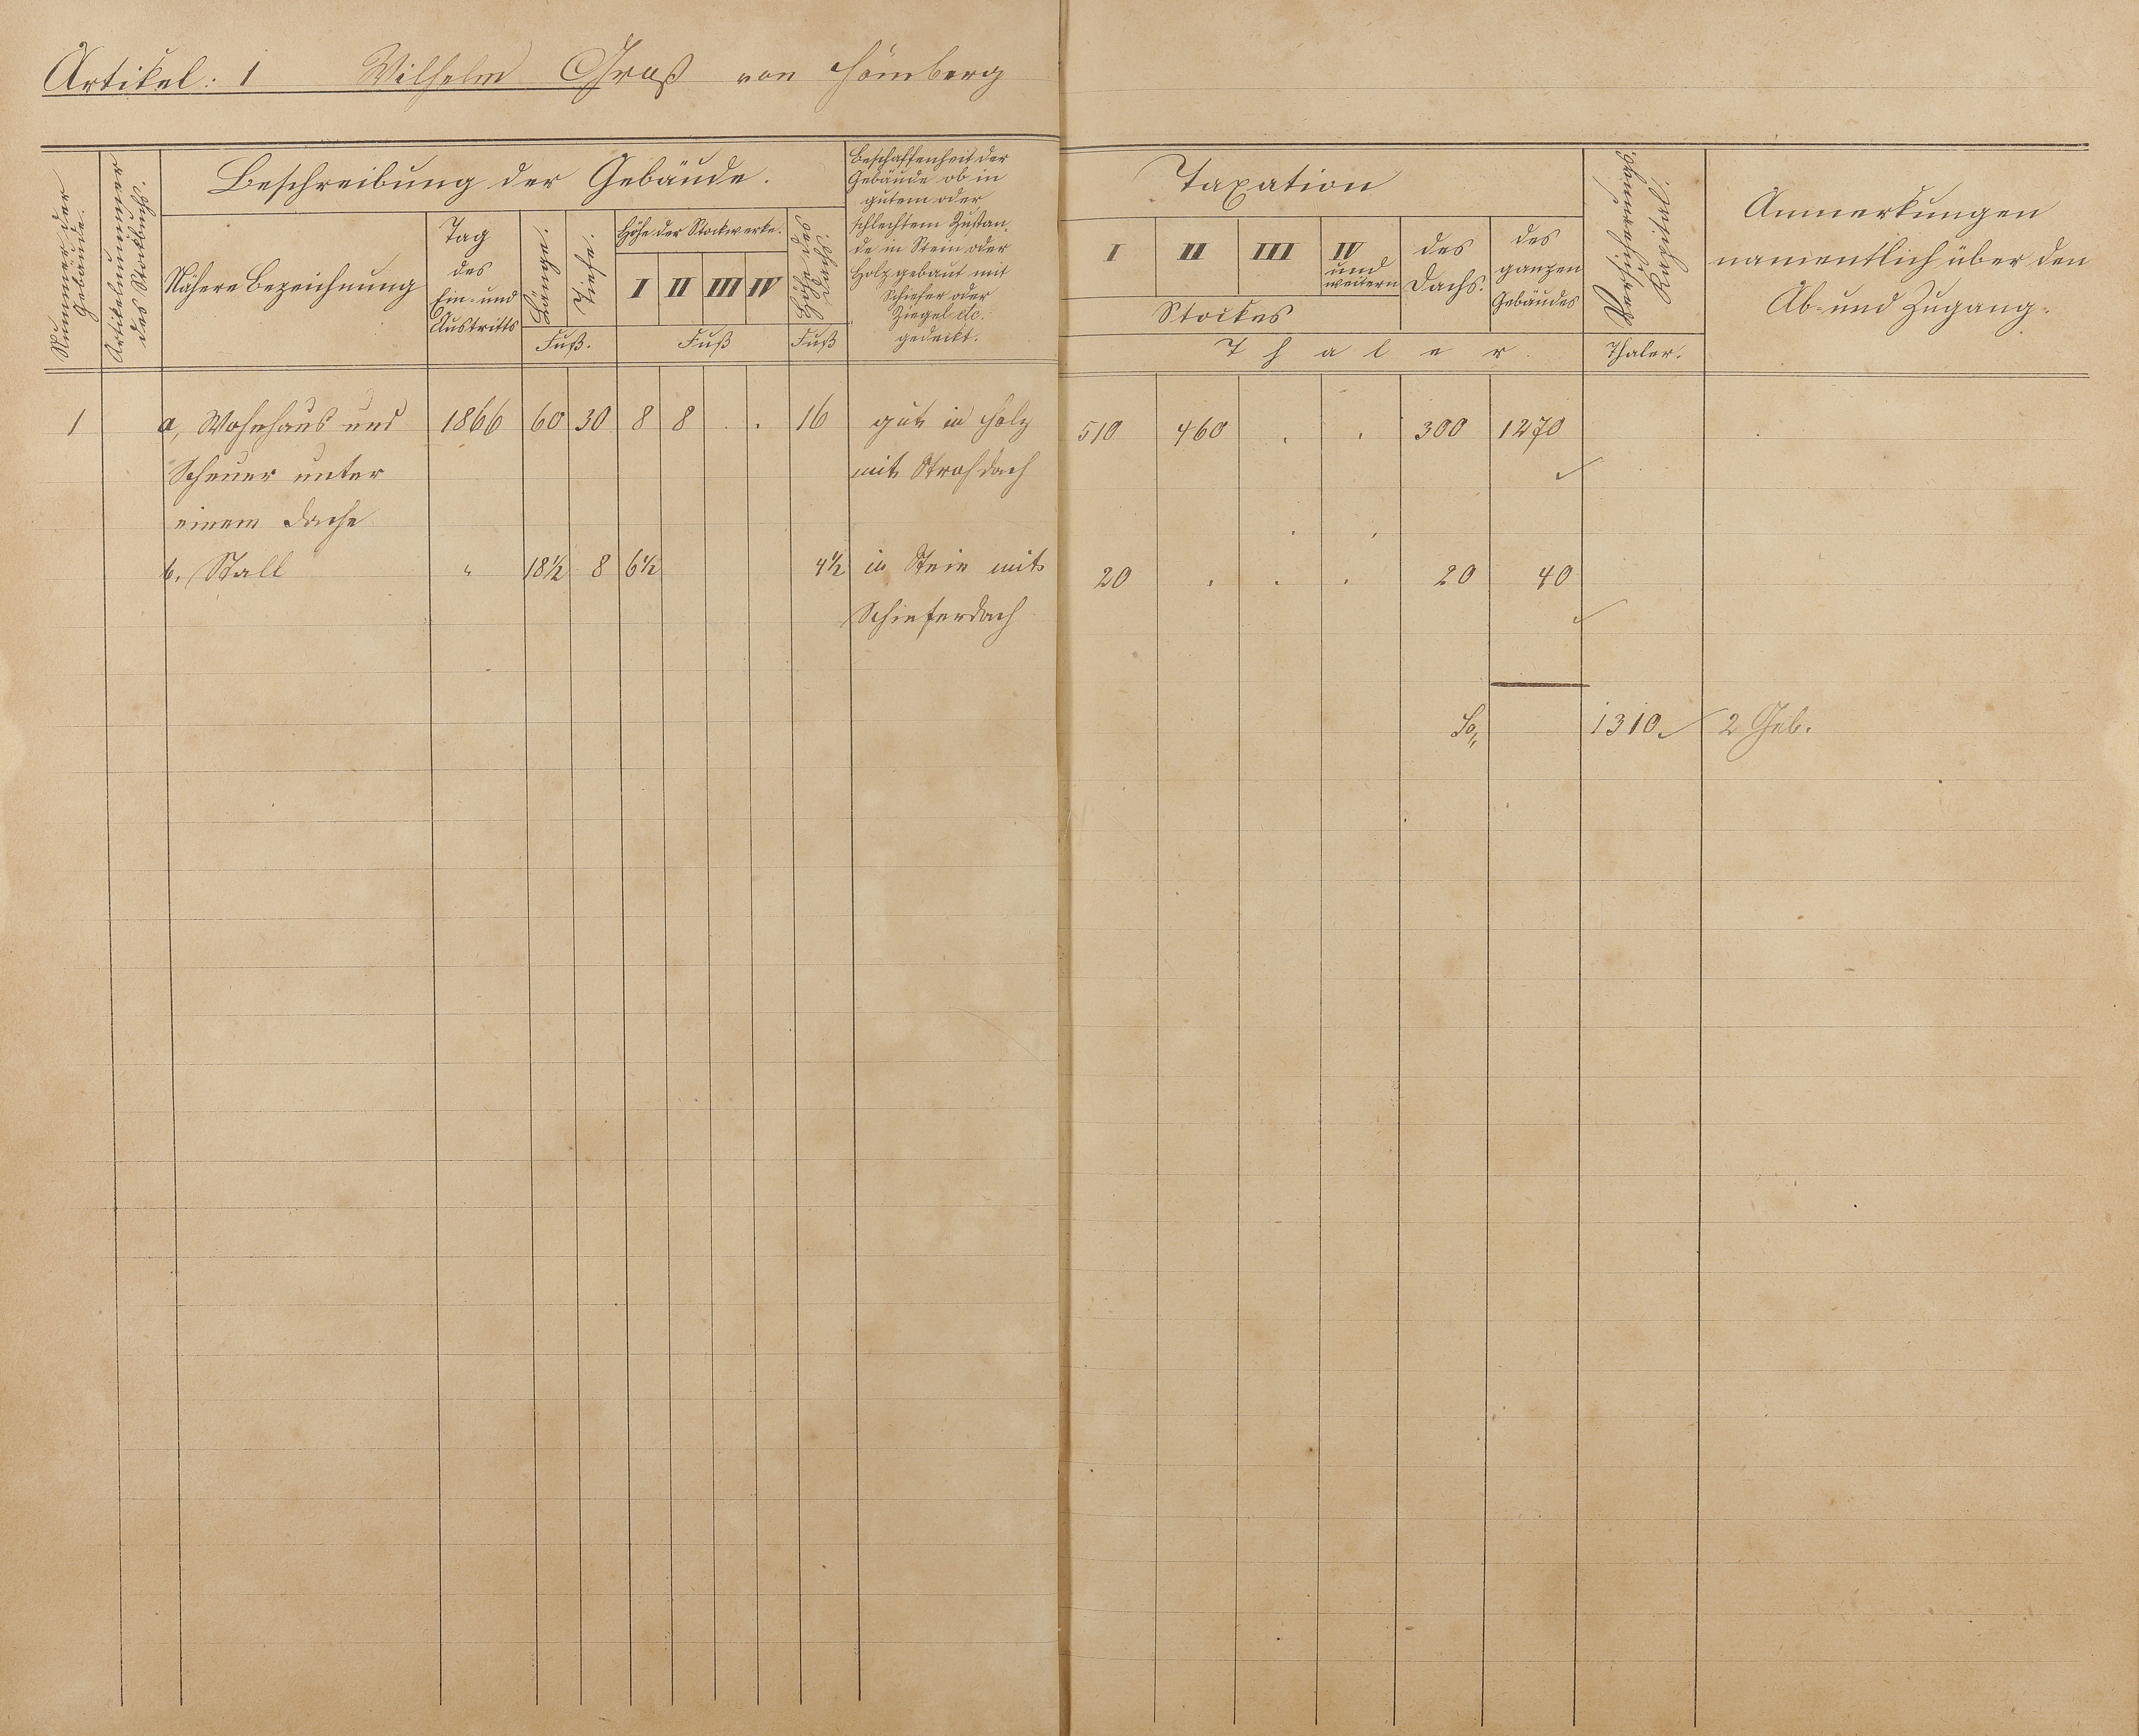 Artikel: 1 Wilhelm Groß von Hömberg
Nummer der Gebäude.
Artikelnummer des Stockbuchs.
Beschreibung der Gebäude.
Nähere Bezeichnung
Tag
des
Ein- und
Austritts
Laenge.
Tiefe.
Fuß.
Höhe der Stockwerke.
I II III IV
Fuß
Höhe des Dachs.
Fuß
Beschaffenheit der
Gebäude ob in
gutem oder
schlechtem Zustan-
de in Stein oder
Holz gebaut mit
Schiefer oder
Ziegel etc.
gedeckt.
Taxation
I II III IV
und
weitern
Stockes
des
Dachs.
des
ganzen
Gebäudes
Thaler.
Thaler.
Anmerkungen
namentlich über den
Ab- und Zugang.
1 a, Wohnhaus und 1866 60 30 8 8 . . 16 gut in Holz 510 460 . . 300 1270
Scheuer unter mit Strohdach
einem Dache
b. Stall " 18½ 8 6½ 4½ in Stein mit 20 . . . 20 40
Schieferdach
Sa 1310. 2 Geb.